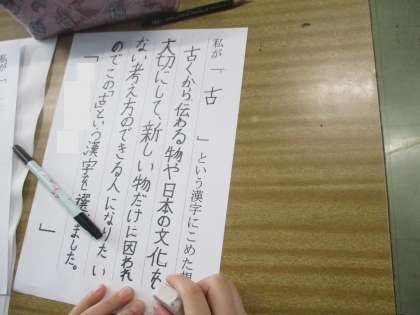 私が「古」という漢字にこめた想
古くから伝わる物や日本の文化を
大切にして、新しい物だけに因われ
ない考え方のできる人になりたい
のでこの「古」という漢字を選びました。
私が「